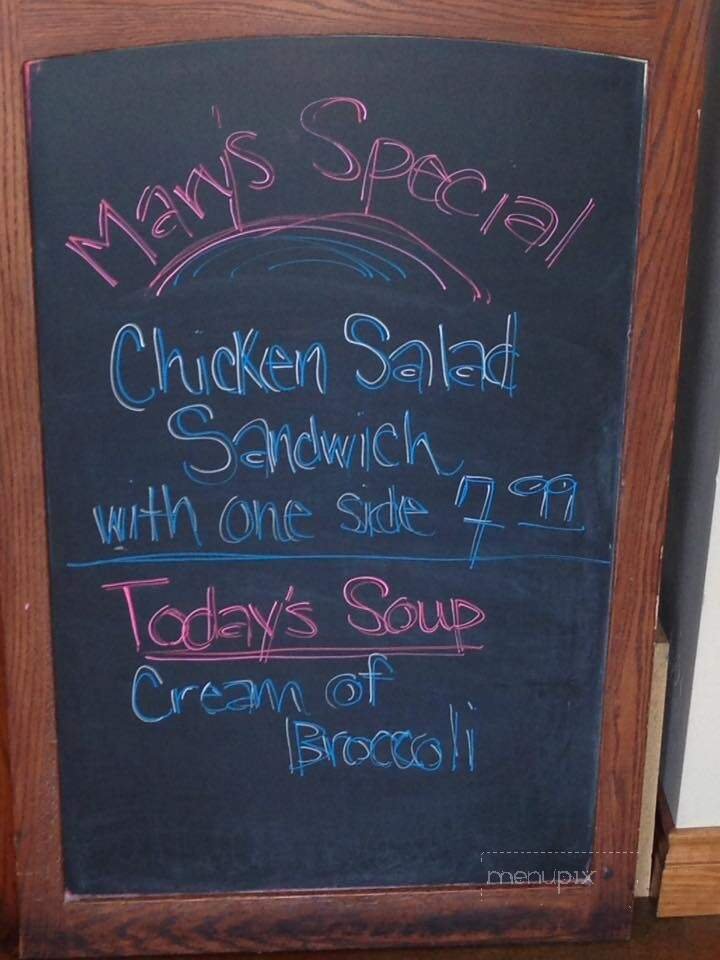 Mary's Special
Chicken Salad
Sandwich
with one side 7.99
Today's Soup
Cream of
Broccoli
menupix